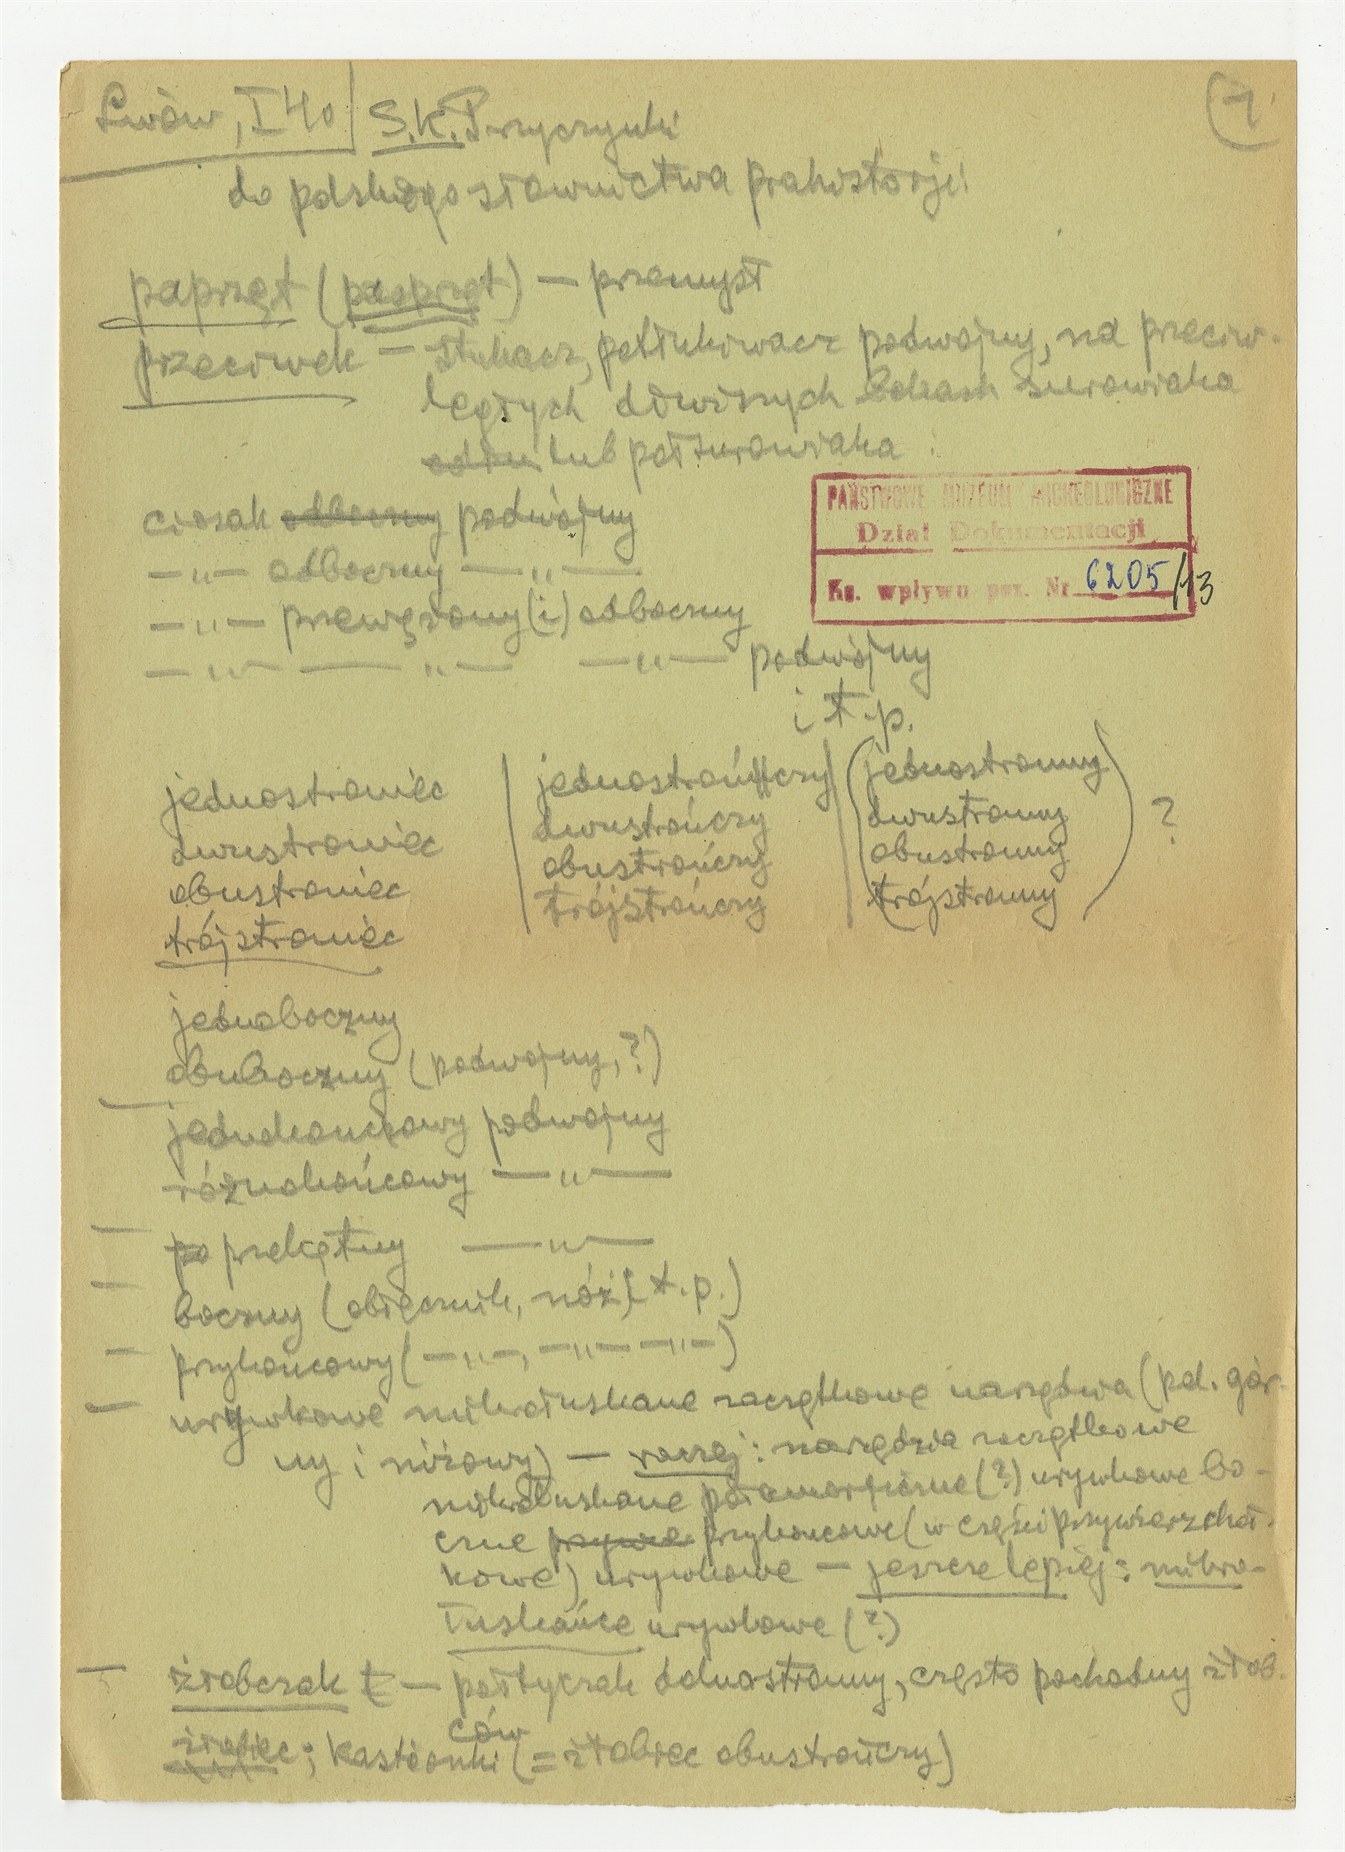 Lwów, I 40 / S.K. Przyczynki (1)
do polskiego słownictwa prahistorji
paprzęt (pasprzęt) — przemysł
przeciwek — stukacz, potłukiwacz podwójny, na przeciw-
ległych dłuższych bokach surowiaka
lub półsurowiaka
PAŃSTWOWE MUZEUM ARCHEOLOGICZNE
Dział Dokumentacji
Ks. wpływu poz. Nr 6205/13
ciosak odboczny podwójny
—„— odboczny —„—
—„— przewężony (i) odboczny
—„— —„— —„— podwójny
i t.p.
jednostroniec | jednostrończy | (jednostronny)
dwustroniec | dwustrończy | (dwustronny) ?
obustroniec | obustrończy | (obustronny)
trójstroniec | trójstrończy | (trójstronny)
jednoboczny
obuboczny (podwójny, ?)
— jednokońcowy podwójny
różnokońcowy —„—
— po przekętny —„—
— boczny (obłęcznik, nóż i t.p.)
— przykońcowy (—„—, —„— —„—)
— urywkowe mikrołuskane szczętkowe narzędzia (pd. gór-
ny i niżowy) — raczej: narzędzia szczętkowe
mikrołuskane (?) urywkowe bo-
czne przykońcowe (w części przywierzchoł-
kowe) urywkowe — jeszcze lepiej: mikro-
łuskańce urywkowe (?)
— żłobczak t — półtyczak dolnostronny, często pochodny żłob-
ców
żłobiec; kastéonki (= żłobiec obustrończy)